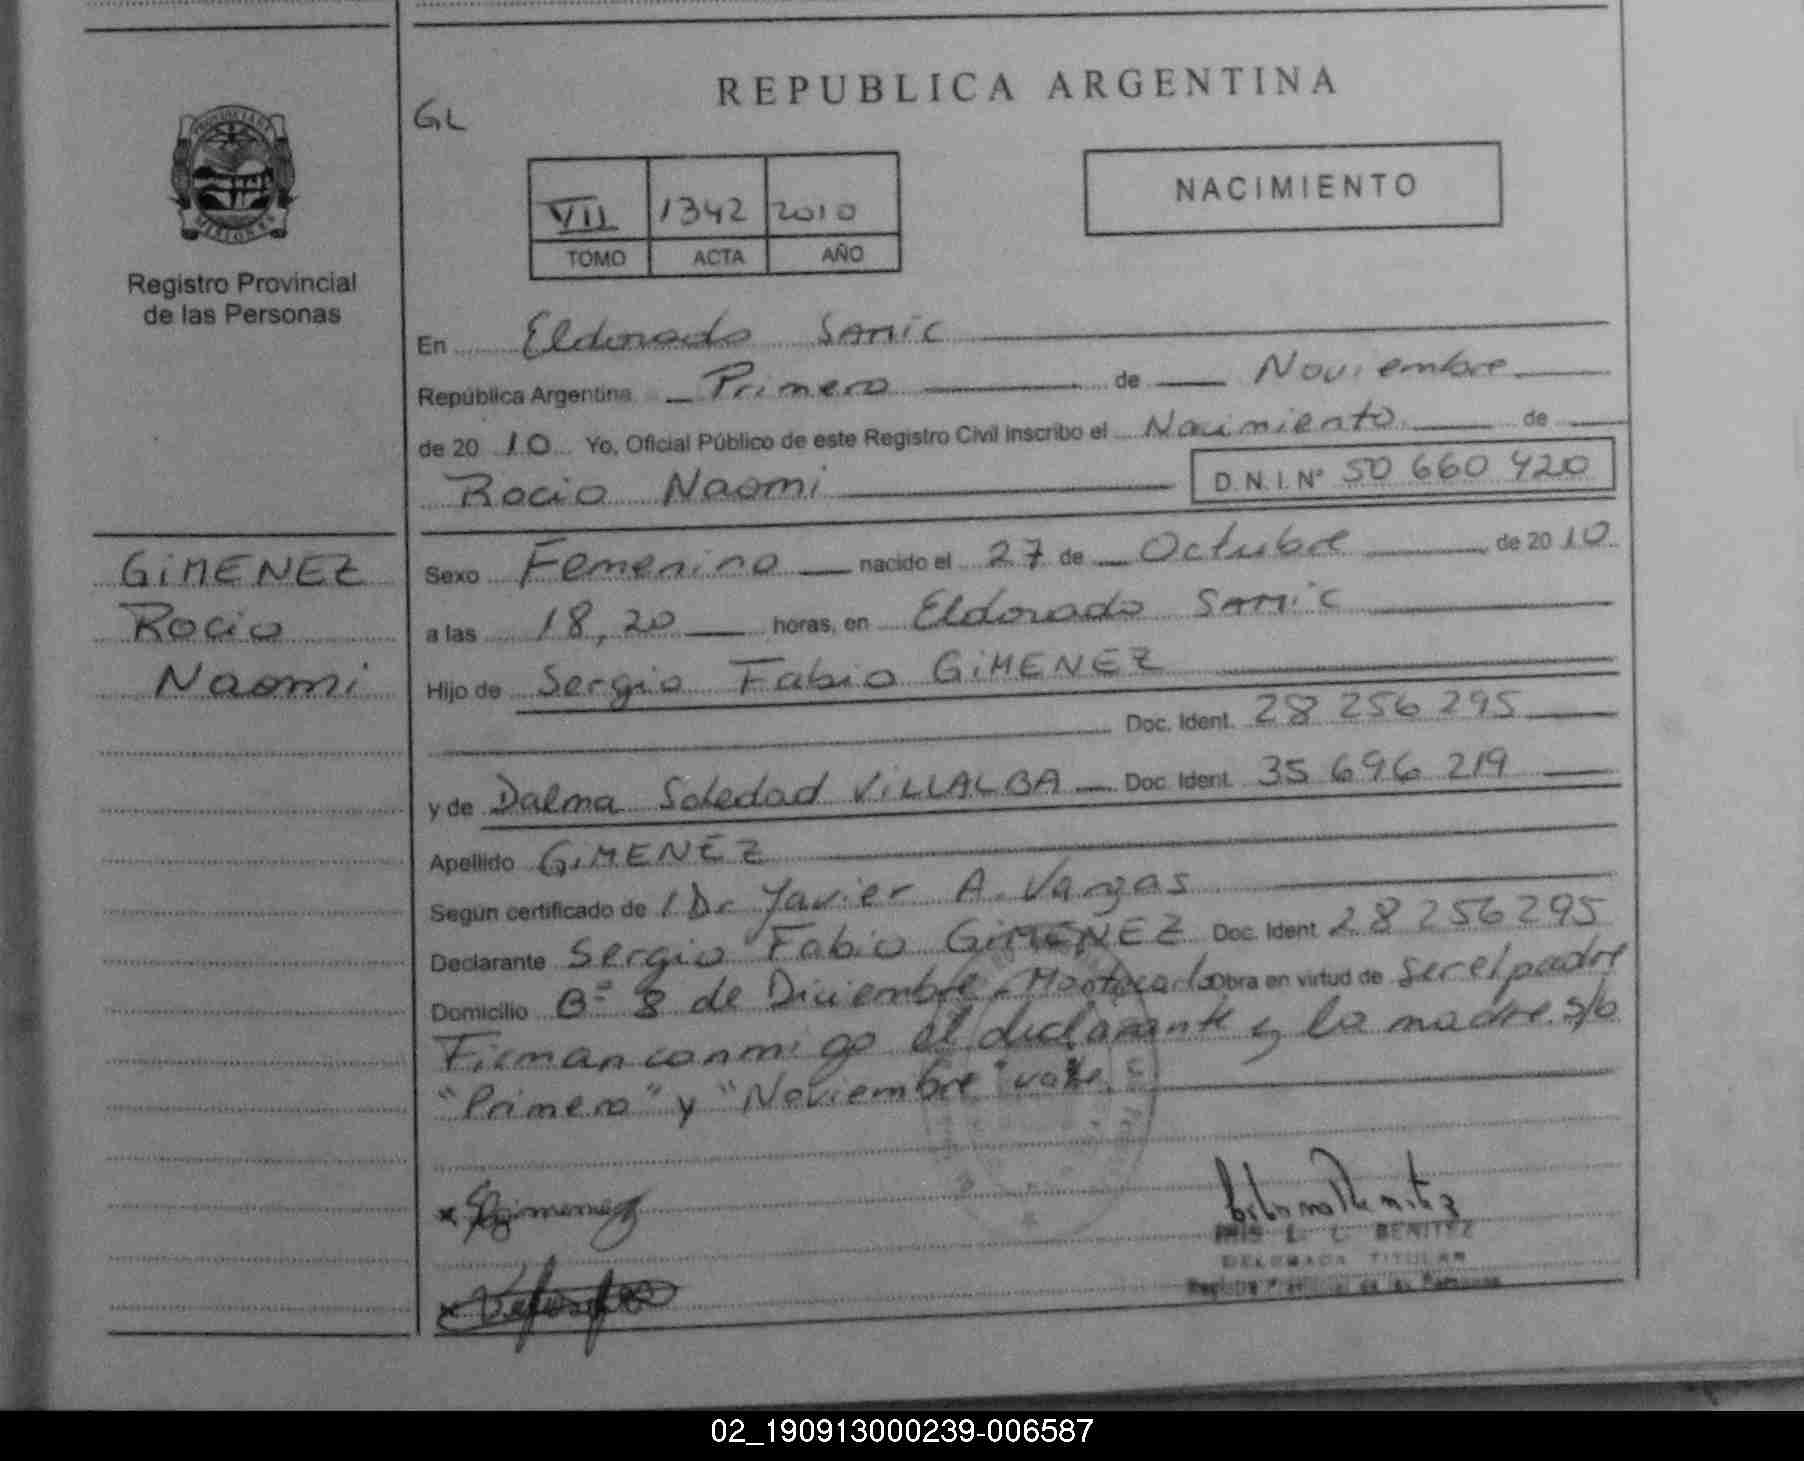 REPUBLICA ARGENTINA
GL
NACIMIENTO
VII 1342 2010
TOMO ACTA AÑO
PROVINCIA DE
MISIONES
Registro Provincial
de las Personas
En Eldorado SAMIC
República Argentina Primero de Noviembre
de 20 10 Yo, Oficial Público de este Registro Civil Inscribo el Nacimiento de
Rocio Naomi D.N.I.Nº 50 660 420
GiMENEZ
Rocio
Naomi
Sexo Femenino nacido el 27 de Octubre de 20 10
a las 18,20 horas, en Eldorado SAMIC
Hijo de Sergio Fabio GiMENEZ
Doc. Ident. 28 256 295
y de Dalma Soledad ViLLALBA Doc. Ident. 35 696 219
Apellido GiMENEZ
Según certificado de Dr Javier A. Vargas
Declarante Sergio Fabio GiMENEZ Doc. Ident 28 256295
Domicilio Bº 8 de Diciembre - Montecarlo Obra en virtud de ser el padre
Firman conmigo el declarante y la madre. s/b
"Primero" y "Noviembre" vale.
x
x
L. C. BENITEZ
DELEGADA TITULAR
Registro Provincial de las Personas
02_190913000239-006587